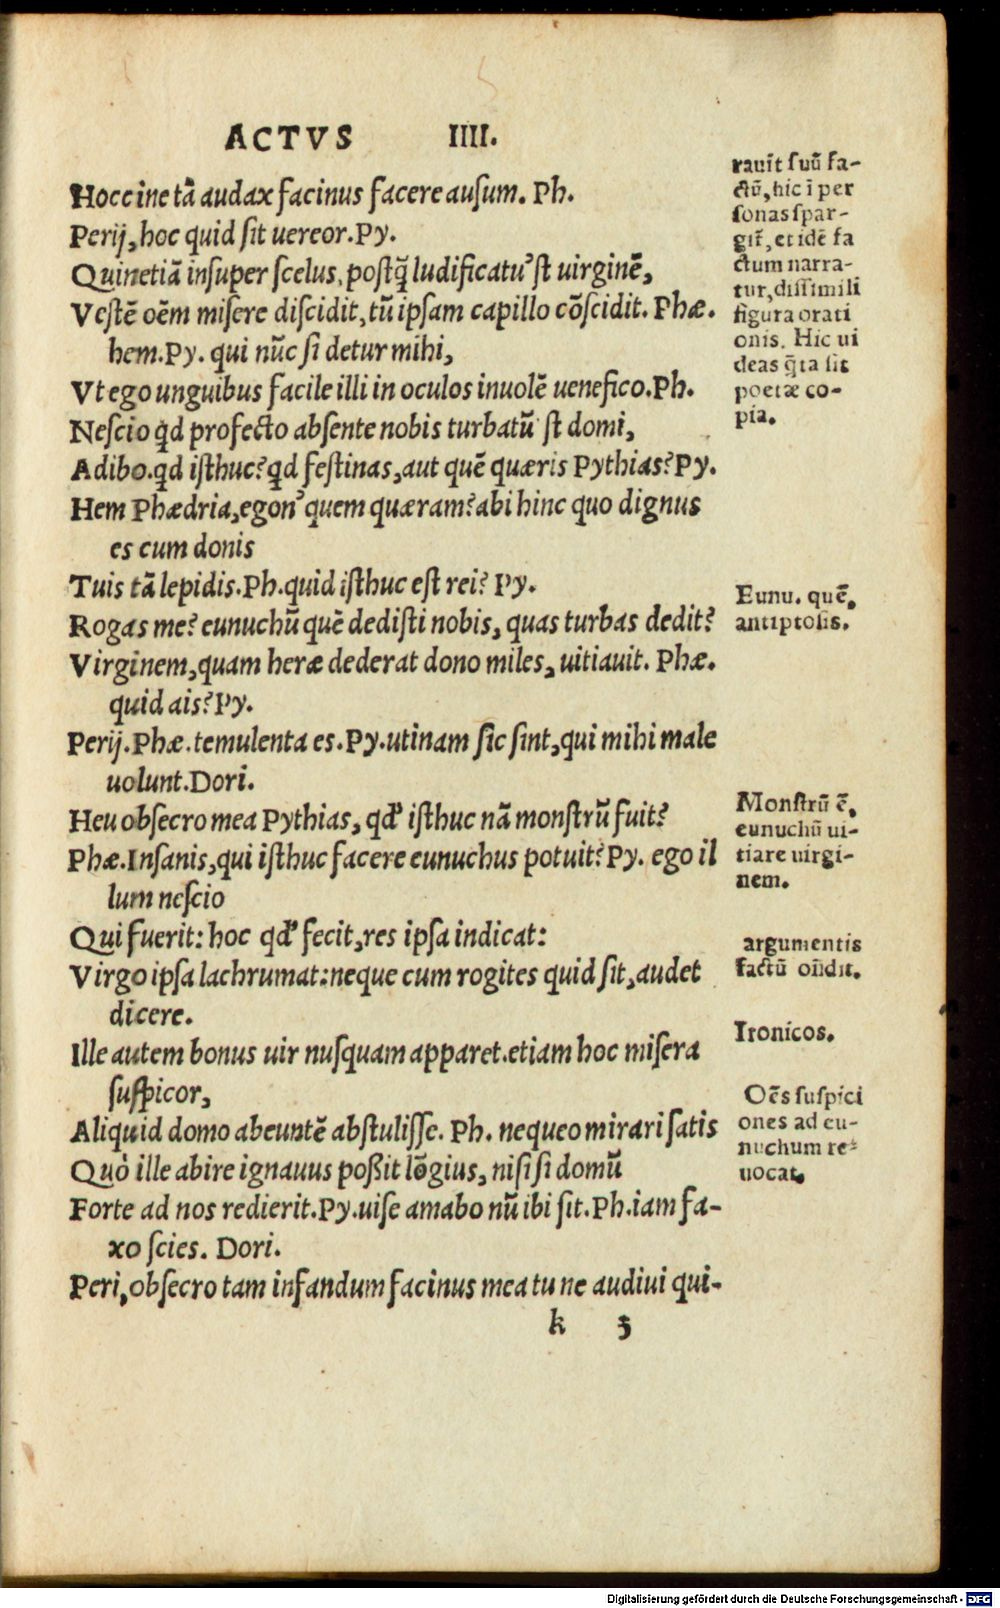 ACTVS IIII.
Hoccine tã audax facinus facere ausum. Ph.
Perij, hoc quid sit uereor. Py.
Quinetiã insuper scelus, postq̃ ludificatu'st uirginẽ,
Vestẽ oẽm misere discidit, tũ ipsam capillo cõscidit. Phæ.
hem. Py. qui nũc si detur mihi,
Vt ego unguibus facile illi in oculos inuolẽ uenefico. Ph.
Nescio qd profecto absente nobis turbatũ st domi,
Adibo. qd isthuc? qd festinas, aut quẽ quæris Pythias? Py.
Hem Phædria, egon' quem quæram? abi hinc quo dignus
es cum donis
Tuis tã lepidis. Ph. quid isthuc est rei? Py.
Rogas me? eunuchũ quẽ dedisti nobis, quas turbas dedit?
Virginem, quam heræ dederat dono miles, uitiauit. Phæ.
quid ais? Py.
Perij. Phæ. temulenta es. Py. utinam sic sint, qui mihi male
uolunt. Dori.
Heu obsecro mea Pythias, qd' isthuc nã monstrũ fuit?
Phæ. Insanis, qui isthuc facere eunuchus potuit? Py. ego il
lum nescio
Qui fuerit: hoc qd' fecit, res ipsa indicat:
Virgo ipsa lachrumat: neque cum rogites quid sit, audet
dicere.
Ille autem bonus uir nusquam apparet. etiam hoc misera
suspicor,
Aliquid domo abeuntẽ abstulisse. Ph. nequeo mirari satis
Quò ille abire ignauus poßit lõgius, nisi si domũ
Forte ad nos redierit. Py. uise amabo nũ ibi sit. Ph. iam fa-
xo scies. Dori.
Peri, obsecro tam infandum facinus mea tu ne audiui qui-
k 3
rauit suũ fa-
ctũ, hic ĩ per
sonas spar-
git̃, et idẽ fa
ctum narra-
tur, dissimili
figura orati
onis. Hic ui
deas q̃ta sit
poetæ co-
pia.
Eunu. quẽ,
antiptosis.
Monstrũ ẽ,
eunuchũ ui-
tiare uirgi-
nem.
argumentis
factũ oñdit.
Ironicos.
Oẽs suspici
ones ad eu-
nuchum re-
uocat.
Digitalisierung gefördert durch die Deutsche Forschungsgemeinschaft - DFG